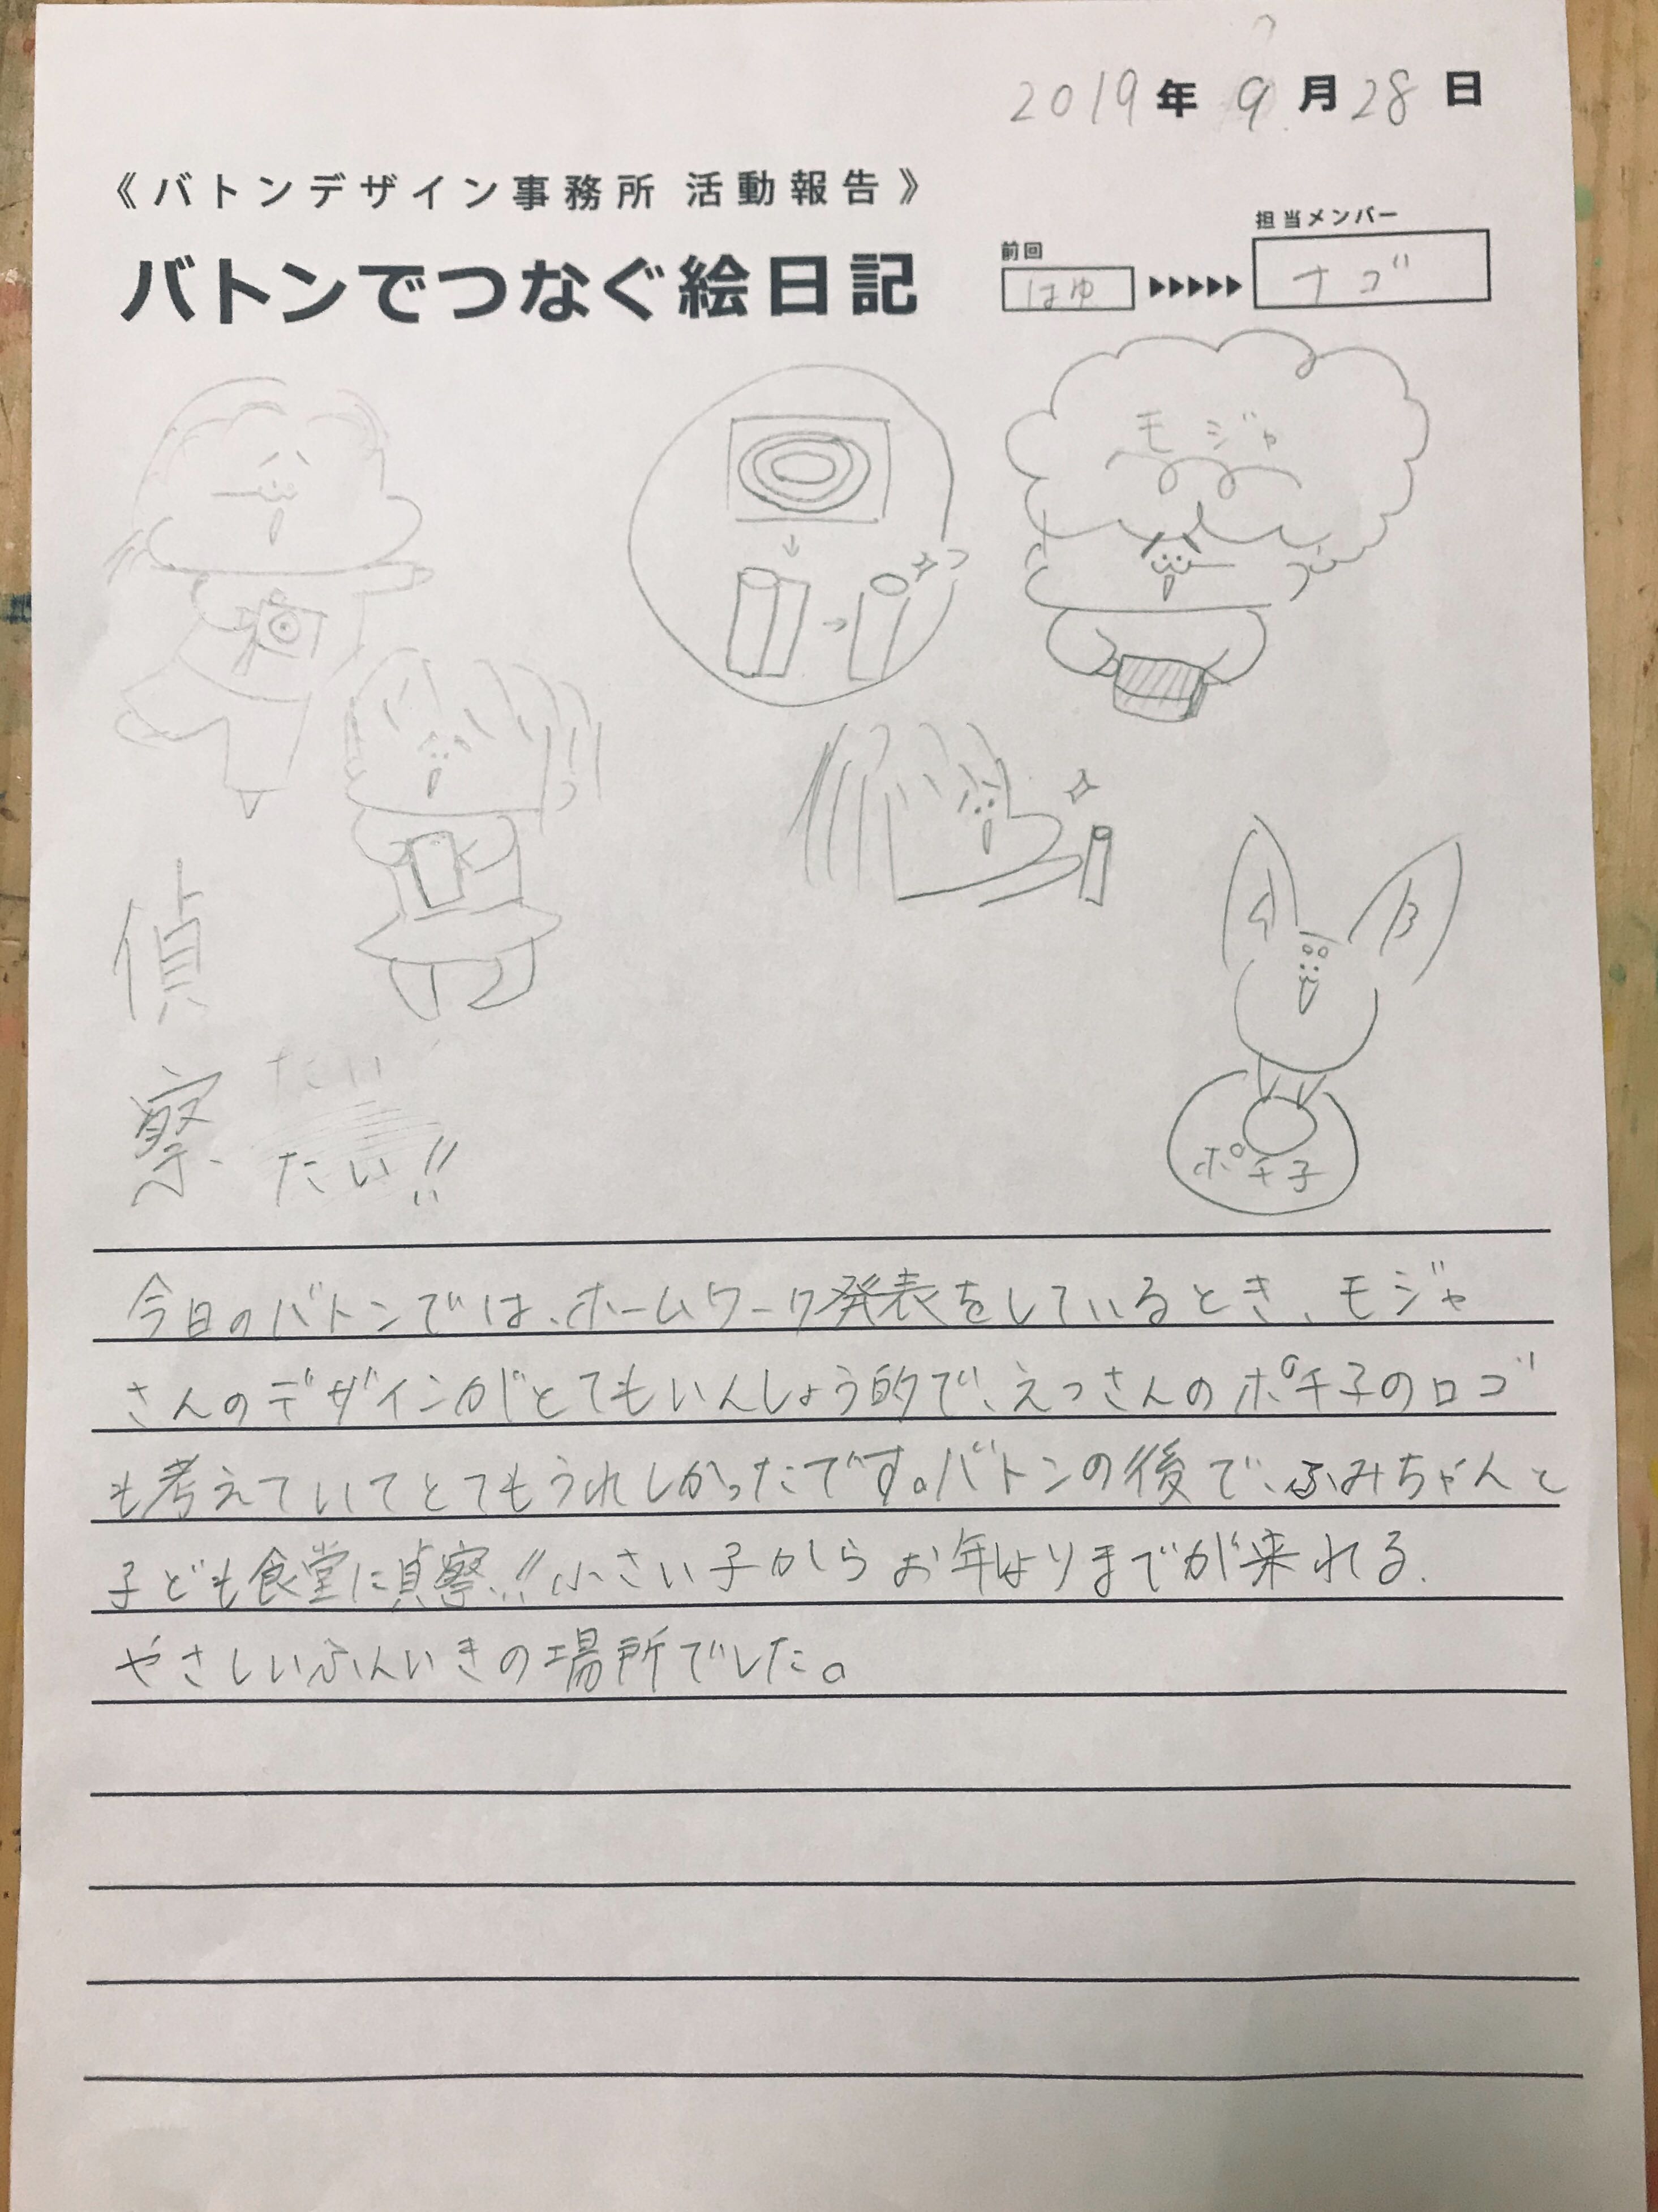 2019年 9月28日
《バトンデザイン事務所 活動報告》
担当メンバー
前回
バトンでつなぐ絵日記
はゆ ▶▶▶▶▶ ナゴ
モジャ
偵
察 たい
たい!!
ポチ子
今日のバトンでは、ホームワーク発表をしているとき、モジャ
さんのデザインがとてもいんしょう的で、えつさんのポチ子のロゴ
も考えていてとてもうれしかったです。バトンの後で、ふみちゃんと
子ども食堂に偵察!!小さい子からお年よりまでが来れる、
やさしいふんいきの場所でした。